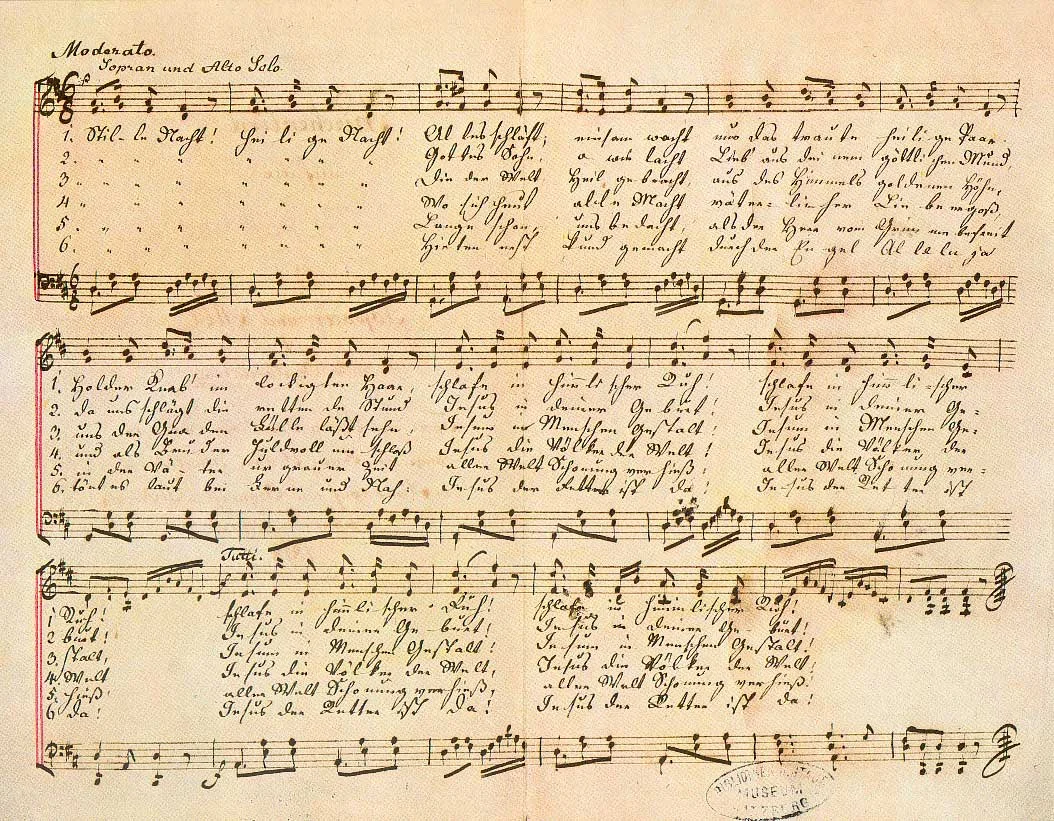 Moderato.
Sopran und Alto Solo.
1. Stil-le Nacht! Hei li ge Nacht! Al les schläft; einsam wacht nur das traute heili ge Paar.
2. " " " " " " Gottes Sohn, o wie lacht Lieb' aus dei nem göttlichen Mund,
3 " " " " " " " Die der Welt Heil gebracht, aus des Himmels goldenen Höhn,
4 " " " " " " " Wo sich heut alle Macht väter-licher Lie be ergoß,
5. " " " " " " " Lange schon, uns bedacht, als der Herr vom Grim me befreit
6. " " " " " " " Hirten erst kund gemacht durch der En gel Al le lu ja
1. Holder Knab' im lockigten Haar, schlafe in himmli scher Ruh! schlafe in himm li-scher
2. da uns schlägt die retten de Stund Jesus in deiner Ge burt! Jesus in deiner Ge-
3. uns der Gna den Fülle läßt sehn, Jesum in Menschen Gestalt! Jesum in Menschen Ge-
4. und als Bruder huldvoll um schloß Jesus die Völker der Welt! Jesus die Völker der
5. in der Vä-ter ur grauer Zeit aller Welt Schonung verhieß! aller Welt Schonung ver-
6. tönt es laut bei Ferne und Nah: Jesus der Retter ist da! Jesus der Ret ter ist
Tutti.
1 Ruh! schlafe in himmli scher Ruh! schlafe in himmlischer Ruh!
2 burt! Jesus in deiner Ge-burt! Jesus in deiner Ge-burt!
3. stalt, Jesum in Menschen Gestalt! Jesum in Menschen Gestalt!
4. Welt Jesus die Völker der Welt, Jesus die Völker der Welt!
5. hieß! aller Welt Schonung verhieß, aller Welt Schonung verhieß!
6 da! Jesus der Retter ist da! Jesus der Retter ist da!
MUSEUM